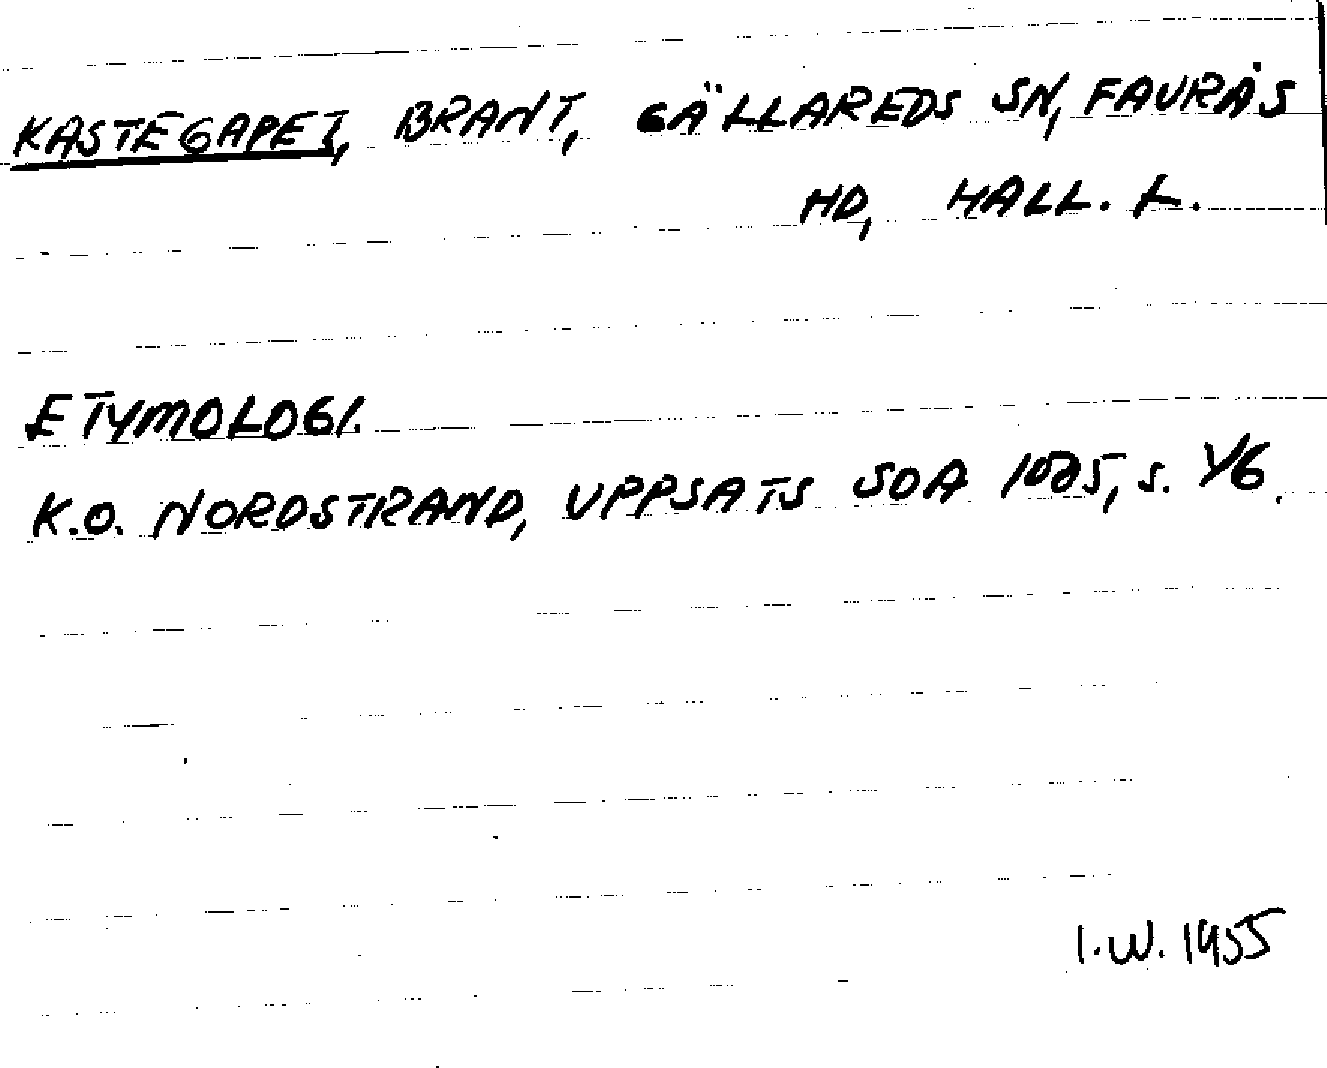 KASTEGAPET, BRANT, GÄLLAREDS SN, FAURÅS
HD, HALL. L.
ETYMOLOGI.
K.O. NORDSTRAND, UPPSATS SOA s.
I.W. 1955